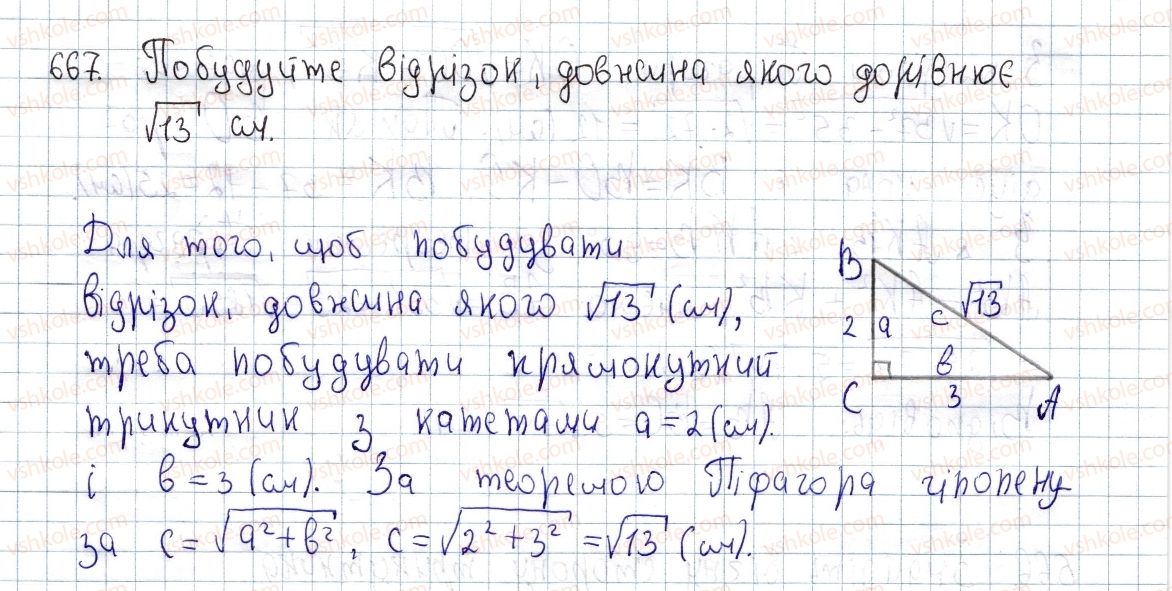 667. Побудуйте відрізок, довжина якого дорівнює
√13 см.
Для того, щоб побудувати
відрізок, довжина якого √13 (см),
треба побудувати прямокутний
трикутник з катетами a=2 (см).
і b=3 (см). За теоремою Піфагора гіпотену
за c=√a²+b², c=√2²+3² =√13 (см).
B
√13
2 a c
b
C 3 A